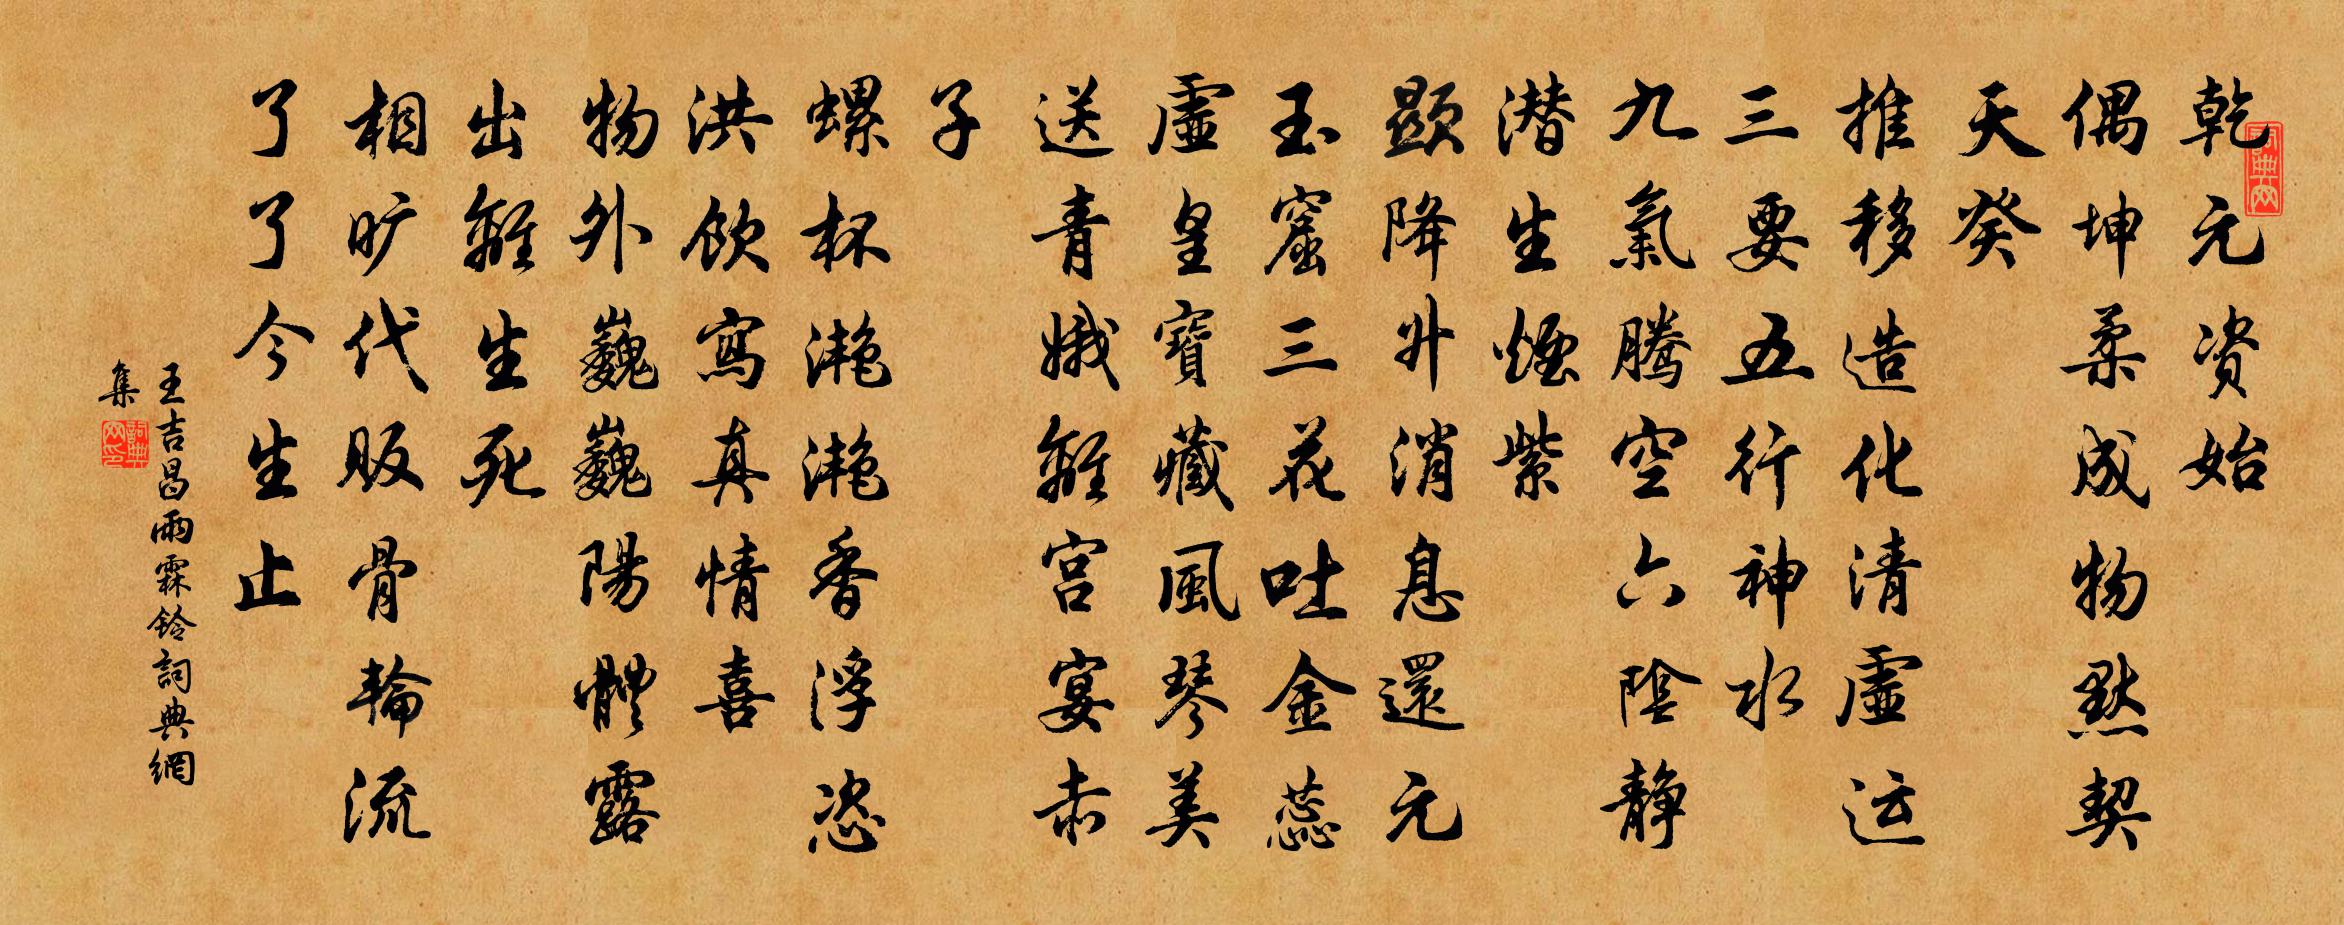 乾元资始
偶坤柔成物默契
天癸
推移造化清虚运
三要五行神水
九氣腾空六陰静
潜生煙紫
顯降升消息還元
玉窟三花吐金蕊
虚皇寶藏風琴美
送青娥離宫宴赤
子
螺杯滟滟香浮恣
洪飲寫真情喜
物外巍巍陽體露
出離生死
相旷代贩骨輪流
了了今生止
王吉昌雨霖鈴詞典網
集
詞典网
詞典网印